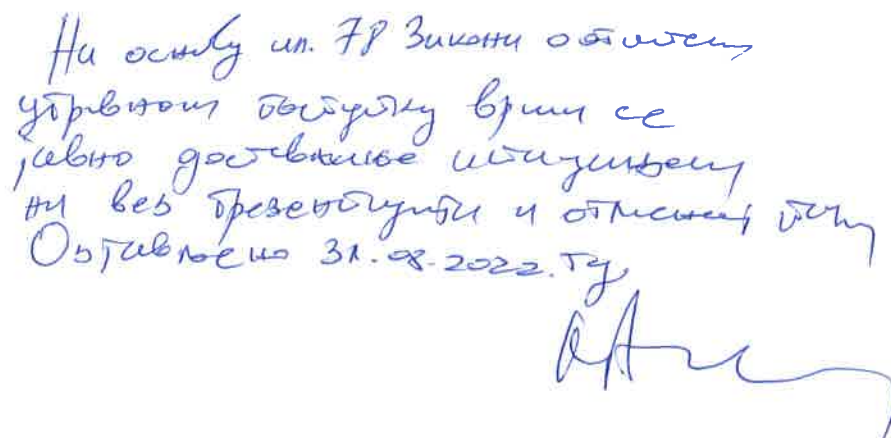 На основу чл. 78 Закона о општем
управном поступку врши се
јавно достављање истицањем
на веб презентацији и огласној табли
Објављено 31.08.2022. год.